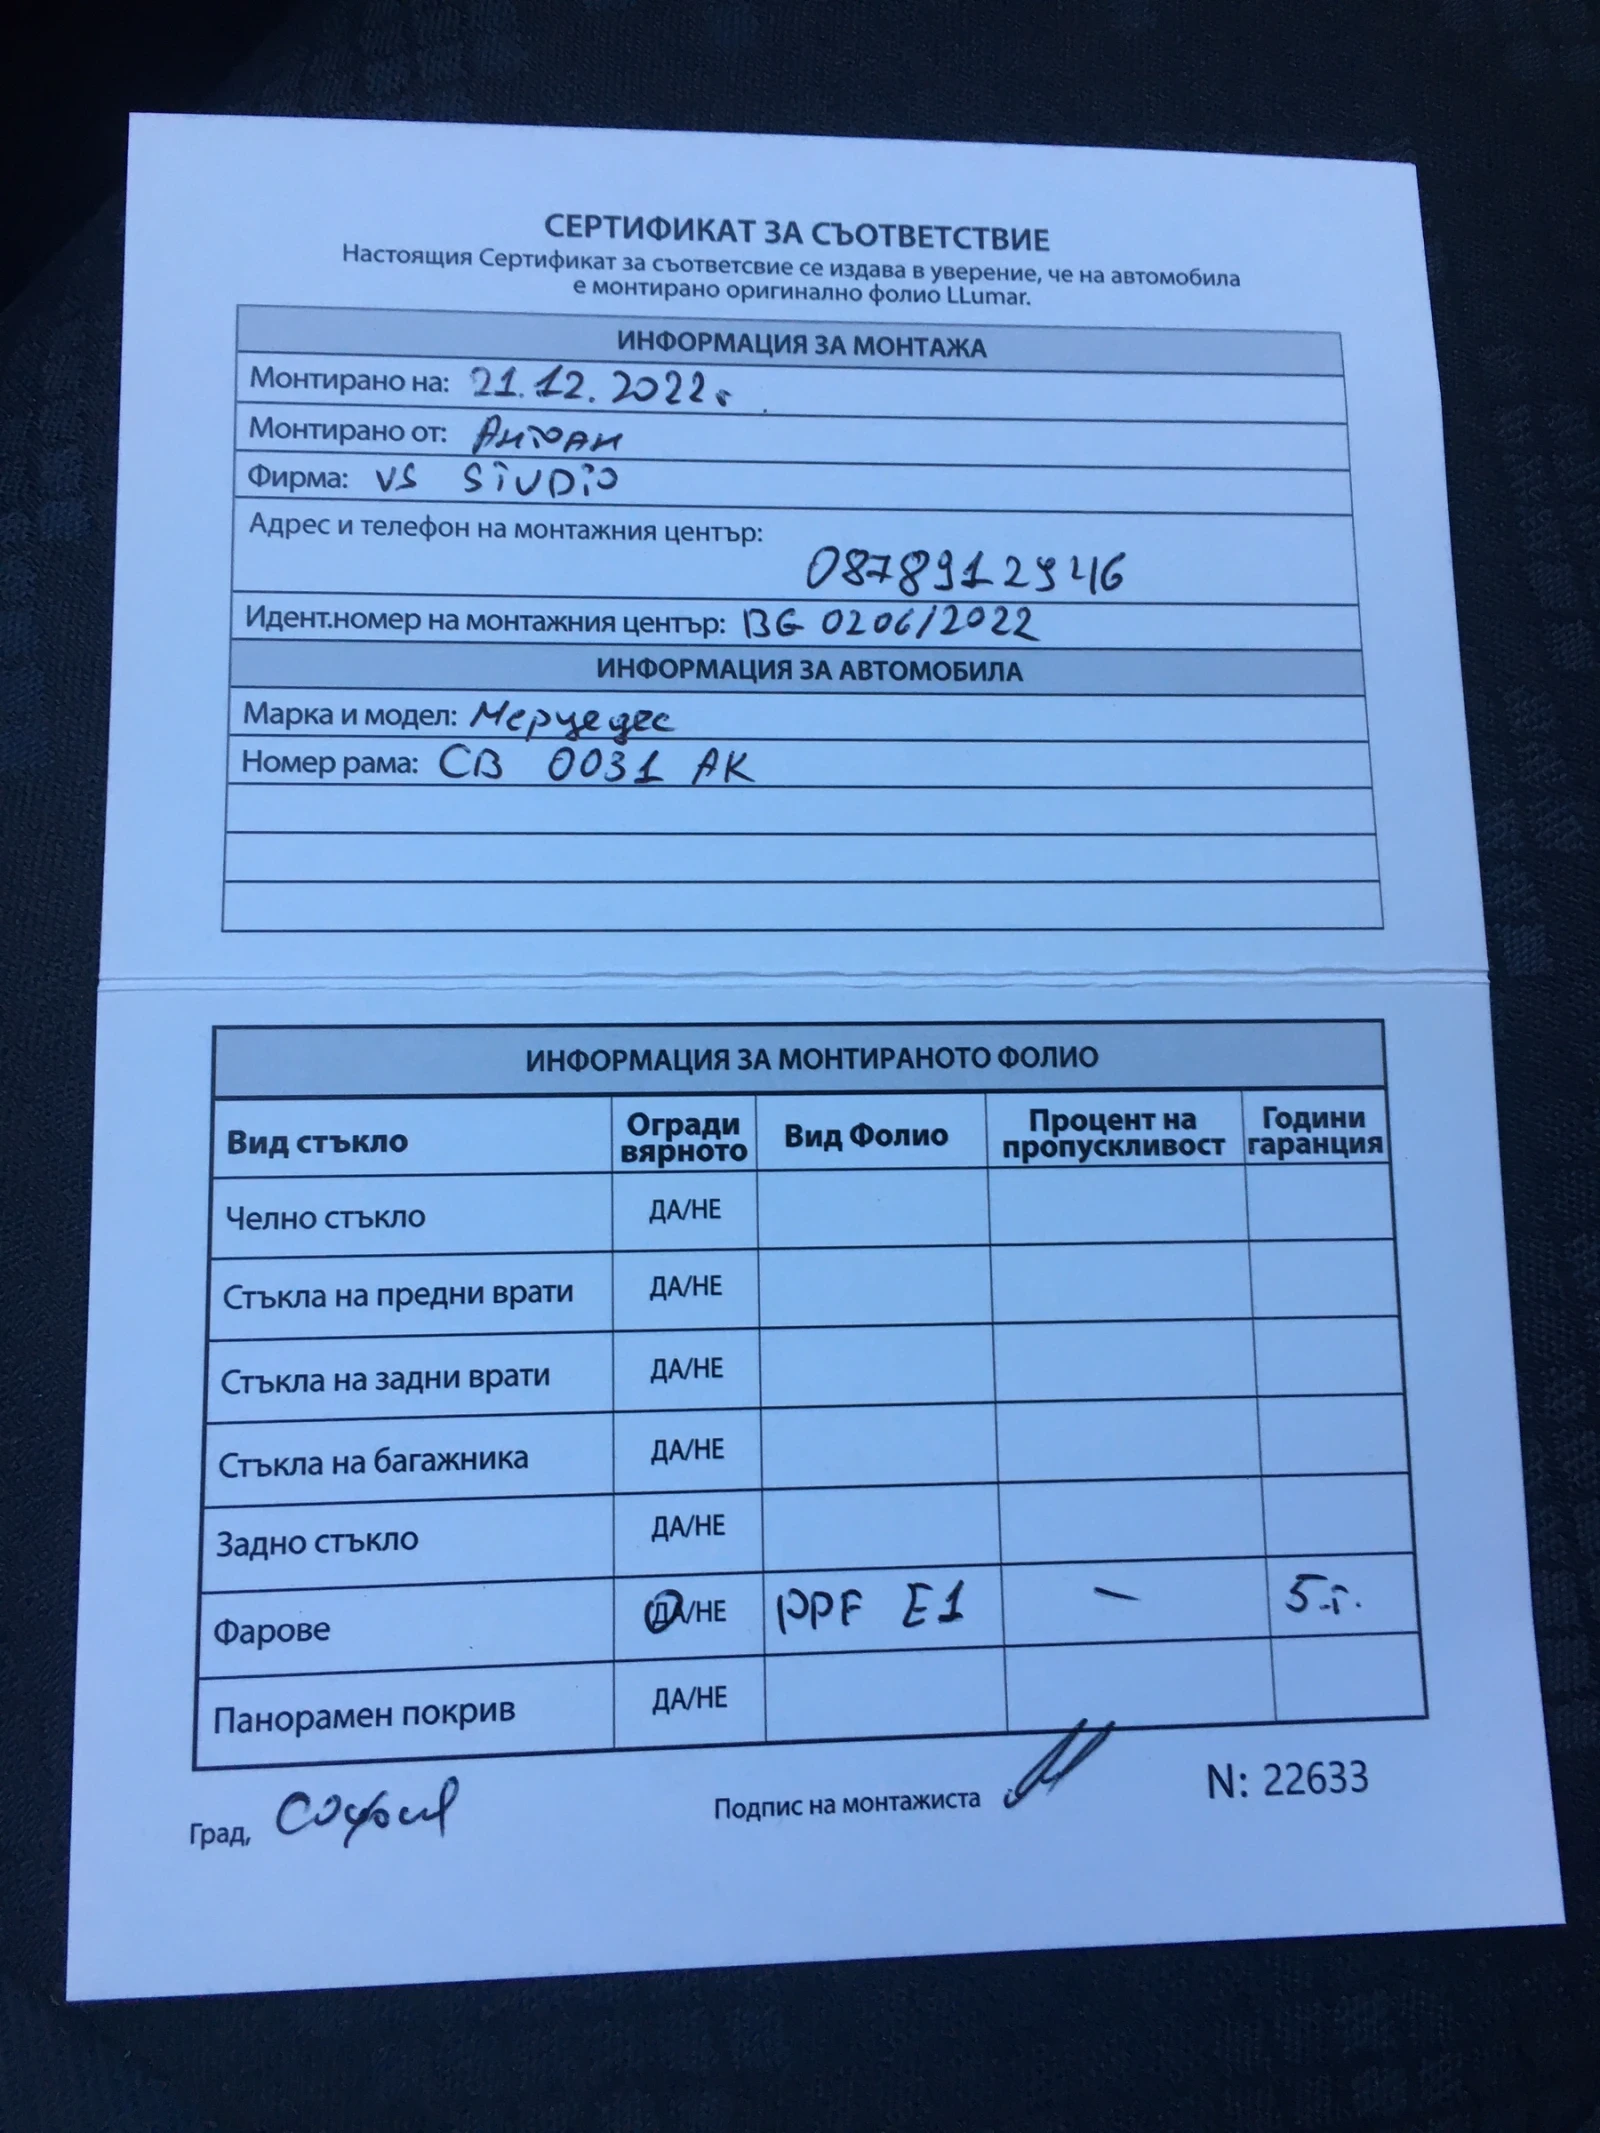 СЕРТИФИКАТ ЗА СЪОТВЕТСТВИЕ
Настоящия Сертификат за съответсвие се издава в уверение, че на автомобила
е монтирано оригинално фолио LLumar.
ИНФОРМАЦИЯ ЗА МОНТАЖА
Монтирано на: 21.12.2022г
Монтирано от: Антоан
Фирма: VS STUDIO
Адрес и телефон на монтажния център:
0878912946
Идент.номер на монтажния център: BG 0206/2022
ИНФОРМАЦИЯ ЗА АВТОМОБИЛА
Марка и модел: Мерцедес
Номер рама: СВ 0031 АК
ИНФОРМАЦИЯ ЗА МОНТИРАНОТО ФОЛИО
Вид стъкло Огради вярното Вид Фолио Процент на пропускливост Години гаранция
Челно стъкло ДА/НЕ
Стъкла на предни врати ДА/НЕ
Стъкла на задни врати ДА/НЕ
Стъкла на багажника ДА/НЕ
Задно стъкло ДА/НЕ
Фарове ДА/НЕ PPF E1 – 5 г.
Панорамен покрив ДА/НЕ
Град, София Подпис на монтажиста N: 22633